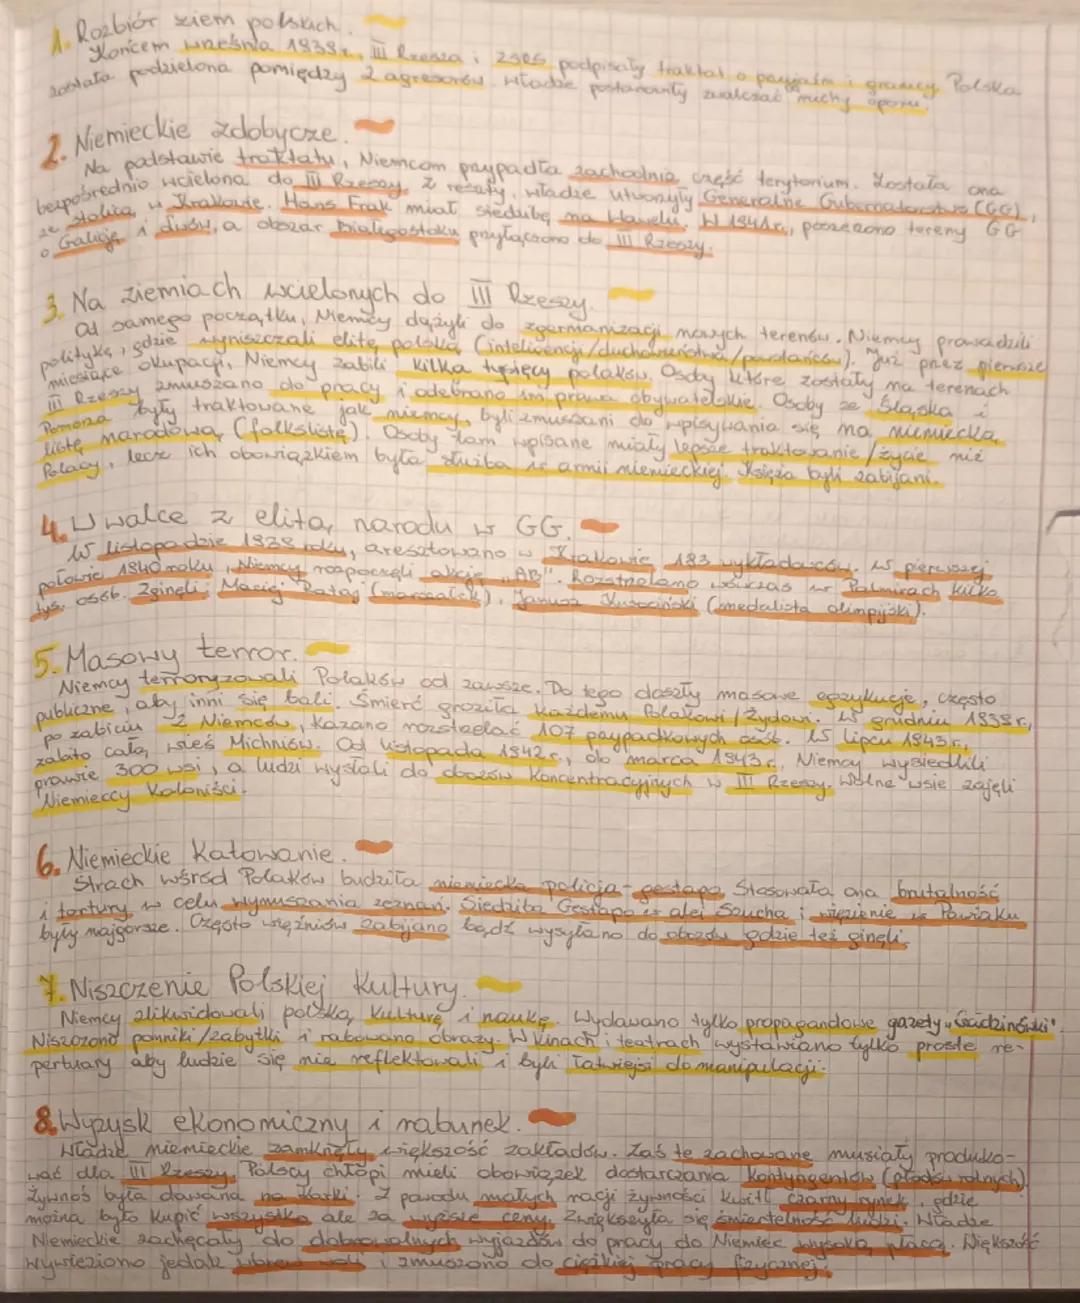 1. Rozbiór ziem polskich.
Końcem września 1939r., III Rzesza i ZSRS podpisały traktat o przyjaźni i granicy. Polska
została podzielona pomiędzy 2 agresorów. Władze postanowiły zwalczać ruchy oporu.
2. Niemieckie zdobycze.
Na podstawie traktatu, Niemcom przypadła zachodnia część terytorium. Została ona
bezpośrednio wcielona do III Rzeszy. Z reszty, władze utworzyły Generalne Gubernatorstwo (GG),
ze stolicą w Krakowie. Hans Frak miał siedzibę na Wawelu. W 1941r., poszerzono tereny GG
o Galicję i Lwów, a obszar Białegostoku przyłączono do III Rzeszy.
3. Na ziemiach wcielonych do III Rzeszy.
Od samego początku, Niemcy dążyli do zgermanizacji nowych terenów. Niemcy prowadzili
politykę, gdzie wyniszczali elitę polską (inteligencji/duchowieństwa/powstańców). Już przez pierwsze
miesiące okupacji, Niemcy zabili kilka tysięcy polaków. Osoby które zostały na terenach
III Rzeszy zmuszano do pracy i odebrano im prawa obywatelskie. Osoby ze Śląska i
Pomorza były traktowane jak niemcy, byli zmuszani do wpisywania się na niemiecką
listę narodową (folkslistę). Osoby tam wpisane miały lepsze traktowanie/życie niż
Polacy, lecz ich obowiązkiem była służba w armii niemieckiej. Księża byli zabijani.
4. U walce z elitą narodu w GG.
W listopadzie 1939 roku, aresztowano w Krakowie 183 wykładowców. W pierwszej
połowie 1940 roku, Niemcy rozpoczęli akcję „AB". Rozstrzelano wówczas w Palmirach kilka
tys. osób. Zginęli: Maciej Rataj (marszałek), Janusz Kusociński (medalista olimpijski).
5. Masowy terror.
Niemcy terroryzowali Polaków od zawsze. Do tego doszły masowe egzykucje, często
publiczne, aby inni się bali. Śmierć groziła każdemu Polakowi/Żydowi. W grudniu 1939r.,
po zabiciu 2 Niemców, kazano rozstrzelać 107 przypadkowych osób. W lipcu 1943r.,
zabito całą wieś Michniów. Od listopada 1942r., do marca 1943r., Niemcy wysiedlili
prawie 300 wsi, a ludzi wysłali do obozów koncentracyjnych w III Rzeszy. Wolne wsie zajęli
Niemieccy Koloniści.
6. Niemieckie Katowanie.
Strach wśród Polaków budziła niemiecka policja - gestapo. Stosowała ona brutalność
i tortury w celu wymuszania zeznań. Siedziba Gestapo w alei Szucha i więzienie w Pawiaku
były najgorsze. Często więźniów zabijano bądź wysyłano do obozów gdzie też ginęli.
7. Niszczenie Polskiej Kultury.
Niemcy zlikwidowali polską kulturę i naukę. Wydawano tylko propagandowe gazety „Gadzinówki".
Niszczono pomniki/zabytki i rabowano obrazy. W kinach i teatrach wystawiano tylko proste re-
pertuary aby ludzie się nie reflektowali i byli łatwiejsi do manipulacji.
8. Wyzysk ekonomiczny i rabunek.
Władze niemieckie zamknęły większość zakładów. Zaś te zachowane musiały produko-
wać dla III Rzeszy. Polscy chłopi mieli obowiązek dostarczania kontyngentów (płodów rolnych).
Żywnoś była dawana na kartki. Z powodu małych racji żywności kwitł czarny rynek, gdzie
można było kupić wszystko ale za wyższe ceny. Zwiększyła się śmiertelność ludzi. Władze
Niemieckie zachęcały do dobrowolnych wyjazdów do pracy do Niemiec wysoką płacą. Większość
wywieziono jednak wbrew woli i zmuszono do ciężkiej pracy fizycznej.